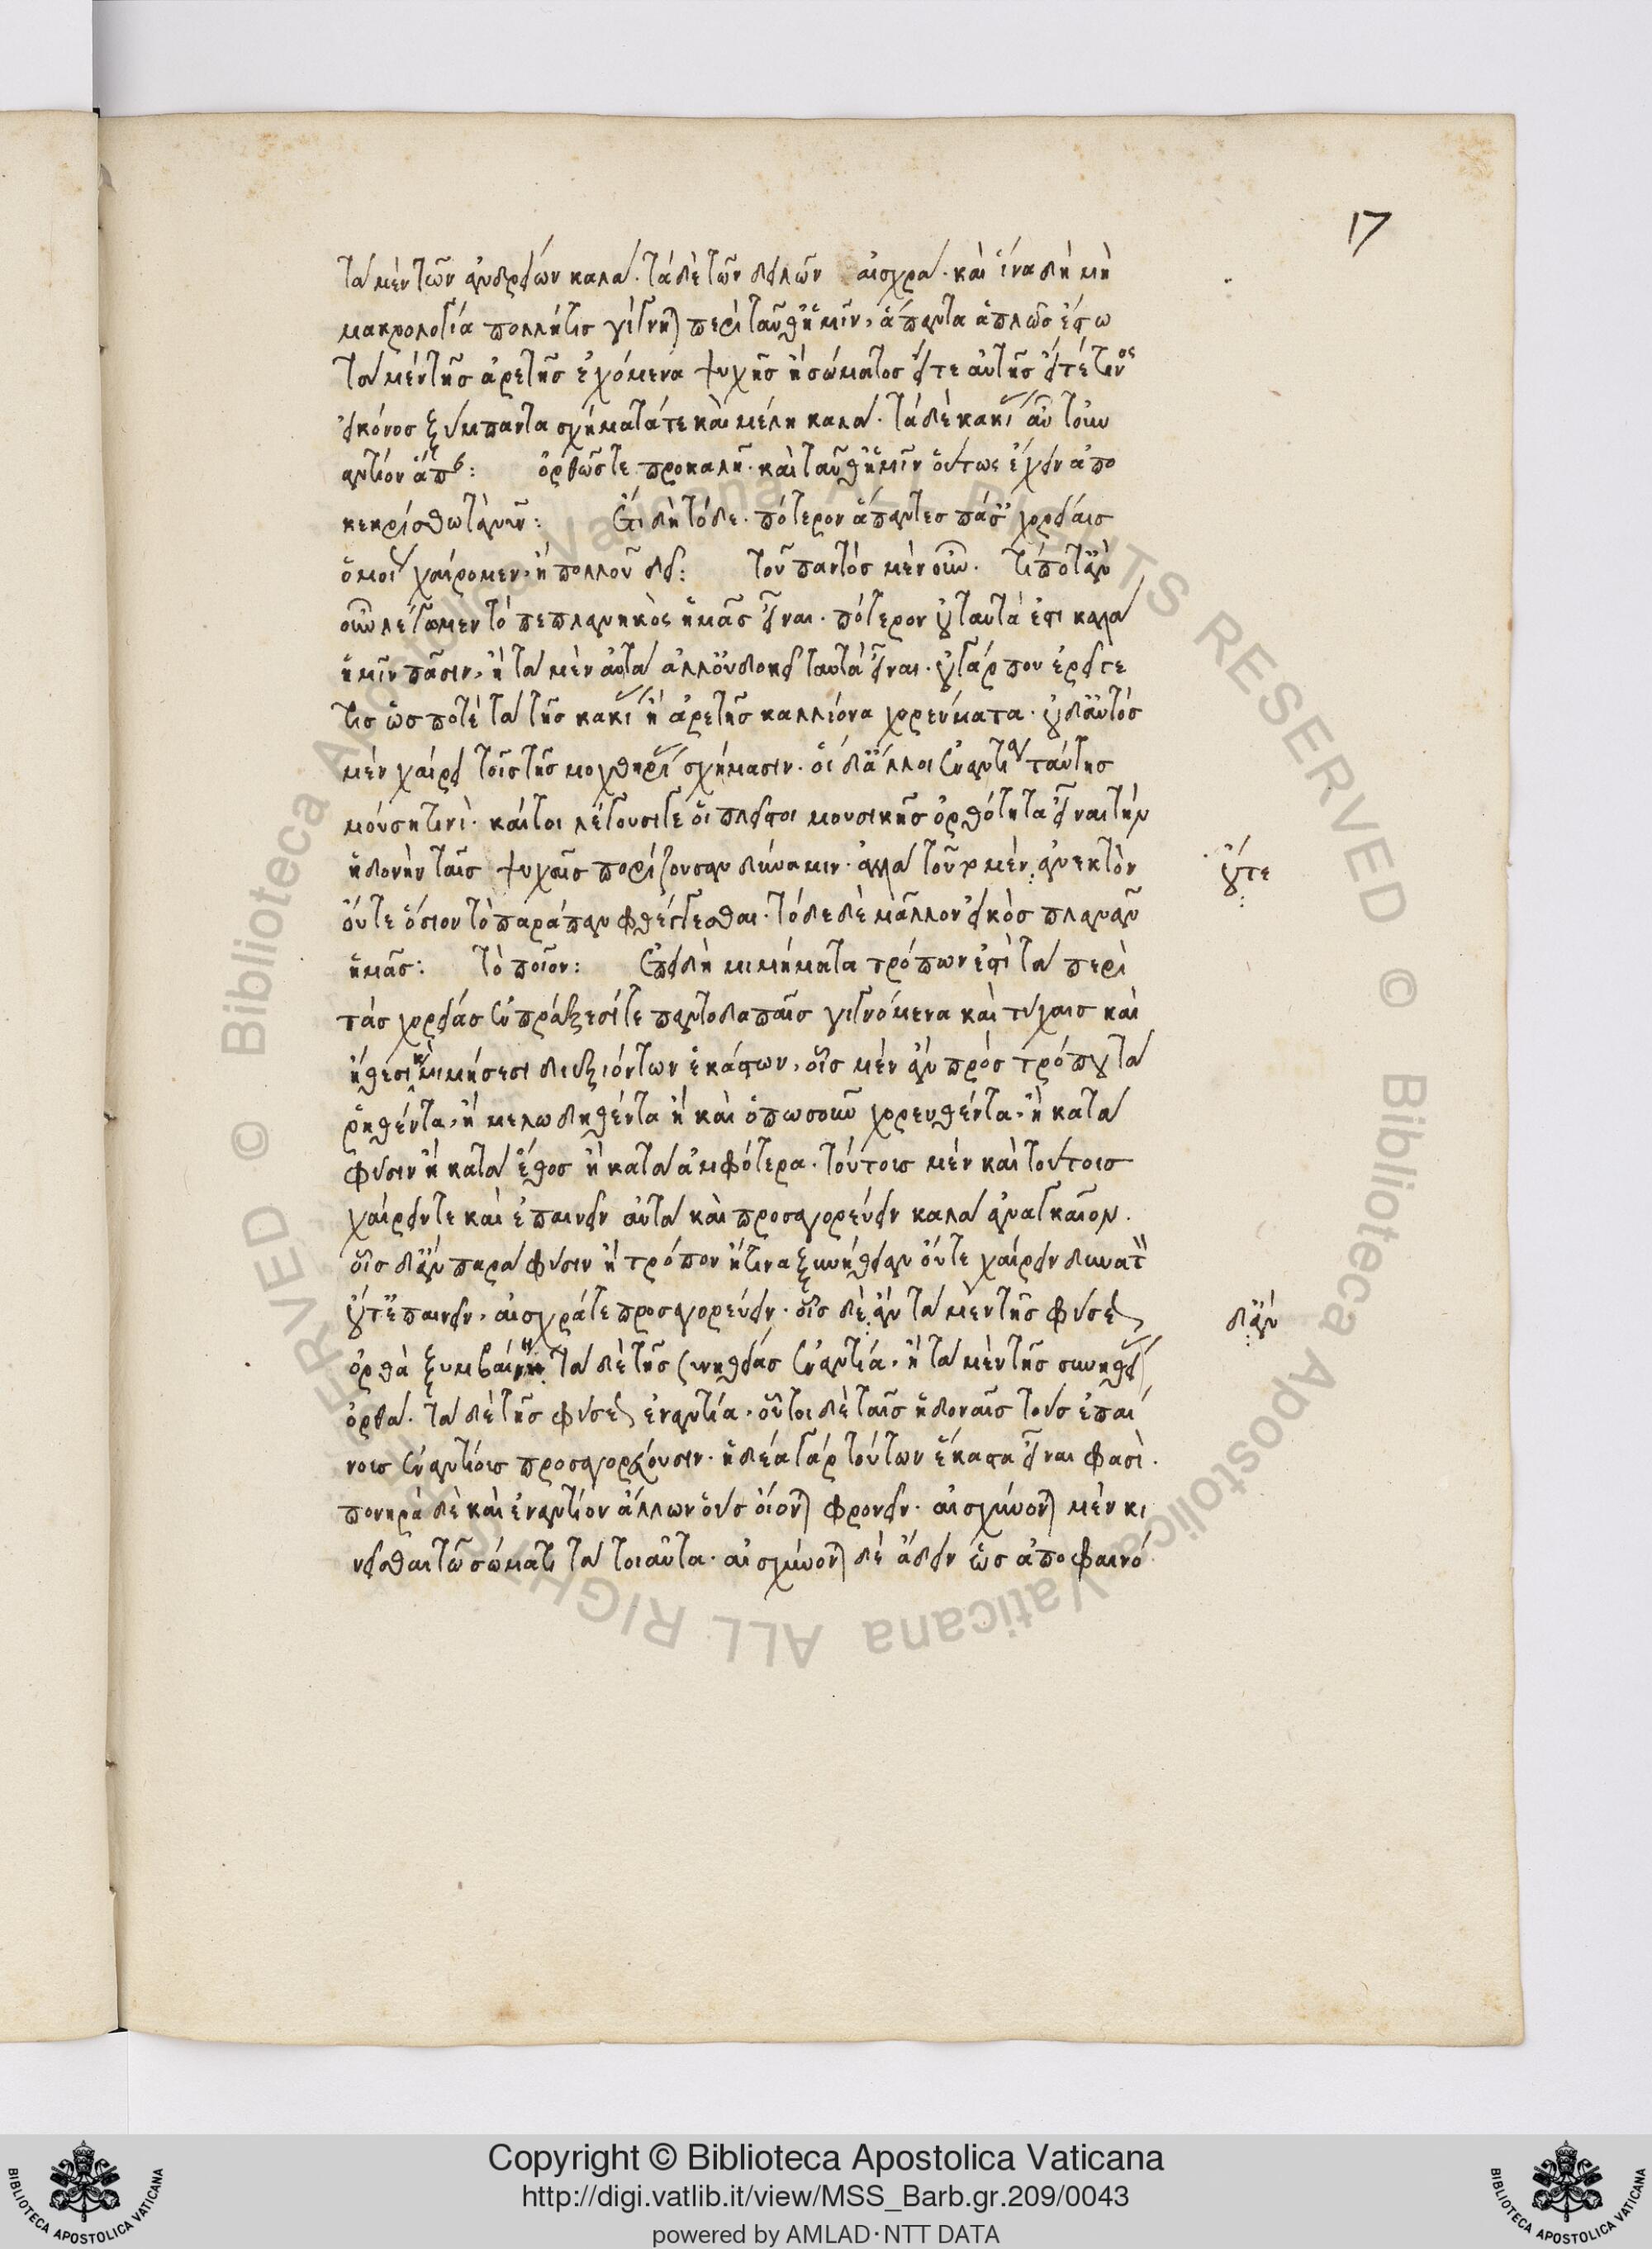 17
τὰ μὲν τῶν ἀνδρείων καλά. τὰ δὲ τῶν δειλῶν αἰσχρά. καὶ ἵνα δὴ μὴ
μακρολογία πολλή τις γίγνηται περὶ ταῦθ' ἡμῖν, ἅπαντα ἁπλῶς ἔστω
τὰ μὲν τῆς ἀρετῆς ἐχόμενα ψυχῆς ἢ σώματος εἴτε αὐτῆς εἴτέ τινος
εἰκόνος ξύμπαντα σχήματά τε καὶ μέλη καλά. τὰ δὲ κακίας αὖ τοὐν
αντίον ἅπαν: ὀρθῶς τε προκαλῇ. καὶ ταῦθ' ἡμῖν οὕτως ἔχειν ἀπο
κεκρίσθω τὰ νῦν: Ἔτι δὴ τόδε. πότερον ἅπαντες πάσαις χορείαις
ὁμοίως χαίρομεν, ἢ πολλοῦ δεῖ: τοῦ παντὸς μὲν οὖν. τί ποτ' ἂν
οὖν λέγωμεν τὸ πεπλανηκὸς ἡμᾶς εἶναι. πότερον οὐ ταυτά ἐστι καλὰ
ἡμῖν πᾶσιν, ἢ τὰ μὲν αὐτὰ ἀλλ' οὐ δοκεῖ ταυτὰ εἶναι. οὐ γάρ που ἐρεῖ γέ
τις ὥς ποτε τὰ τῆς κακίας ἢ ἀρετῆς καλλίονα χορεύματα. οὐδ' αὐτὸς
μὲν χαίρει τοῖς τῆς μοχθηρίας σχήμασιν. οἱ δ' ἄλλοι ἐναντίᾳ ταύτης
μούσῃ τινί. καίτοι λέγουσί γε οἱ πλεῖστοι μουσικῆς ὀρθότητα εἶναι τὴν
ἡδονὴν ταῖς ψυχαῖς πορίζουσαν δύναμιν. ἀλλὰ τοῦτο μὲν ἀνεκτὸν
οὔτε
οὔτε ὅσιον τὸ παράπαν φθέγγεσθαι. τόδε δὲ μᾶλλον εἰκὸς πλανᾶν
ἡμᾶς: τὸ ποῖον: Ἐπειδὴ μιμήματα τρόπων ἐστὶ τὰ περὶ
τὰς χορείας ἐν πράξεσί τε παντοδαπαῖς γιγνόμενα καὶ τύχαις καὶ
ἤθεσι καὶ μιμήσεσι διεξιόντων ἑκάστων, οἷς μὲν ἂν πρὸς τρόπου τὰ
ῥηθέντα, ἢ μελῳδηθέντα ἢ καὶ ὁπωσοῦν χορευθέντα, ἢ κατὰ
φύσιν ἢ κατὰ ἔθος ἢ κατὰ ἀμφότερα. τούτοις μὲν καὶ τούτοις
χαίρειν τε καὶ ἐπαινεῖν αὐτὰ καὶ προσαγορεύειν καλὰ ἀναγκαῖον.
οἷς δ' ἂν παρὰ φύσιν ἢ τρόπον ἤ τινα ξυνήθειαν οὔτε χαίρειν δυνατὸν
οὔτ' ἐπαινεῖν, αἰσχρά τε προσαγορεύειν. οἷς δὲ ἂν τὰ μὲν τῆς φύσεως
δ' ἂν
ὀρθὰ ξυμβαίνῃ τὰ δὲ τῆς συνηθείας ἐναντία, ἢ τὰ μὲν τῆς συνηθείας
ὀρθά. τὰ δὲ τῆς φύσεως ἐναντία. οὗτοι δὲ ταῖς ἡδοναῖς τοὺς ἐπαί
νους ἐναντίους προσαγορεύουσιν. ἡδέα γὰρ τούτων ἕκαστα εἶναι φασί.
πονηρὰ δὲ καὶ ἐναντίον ἄλλων οὓς οἴονται φρονεῖν. αἰσχύνονται μὲν κι
νεῖσθαι τῷ σώματι τὰ τοιαῦτα. αἰσχύνονται δὲ ᾄδειν ὡς ἀποφαινό
Copyright © Biblioteca Apostolica Vaticana
http://digi.vatlib.it/view/MSS_Barb.gr.209/0043
powered by AMLAD·NTT DATA